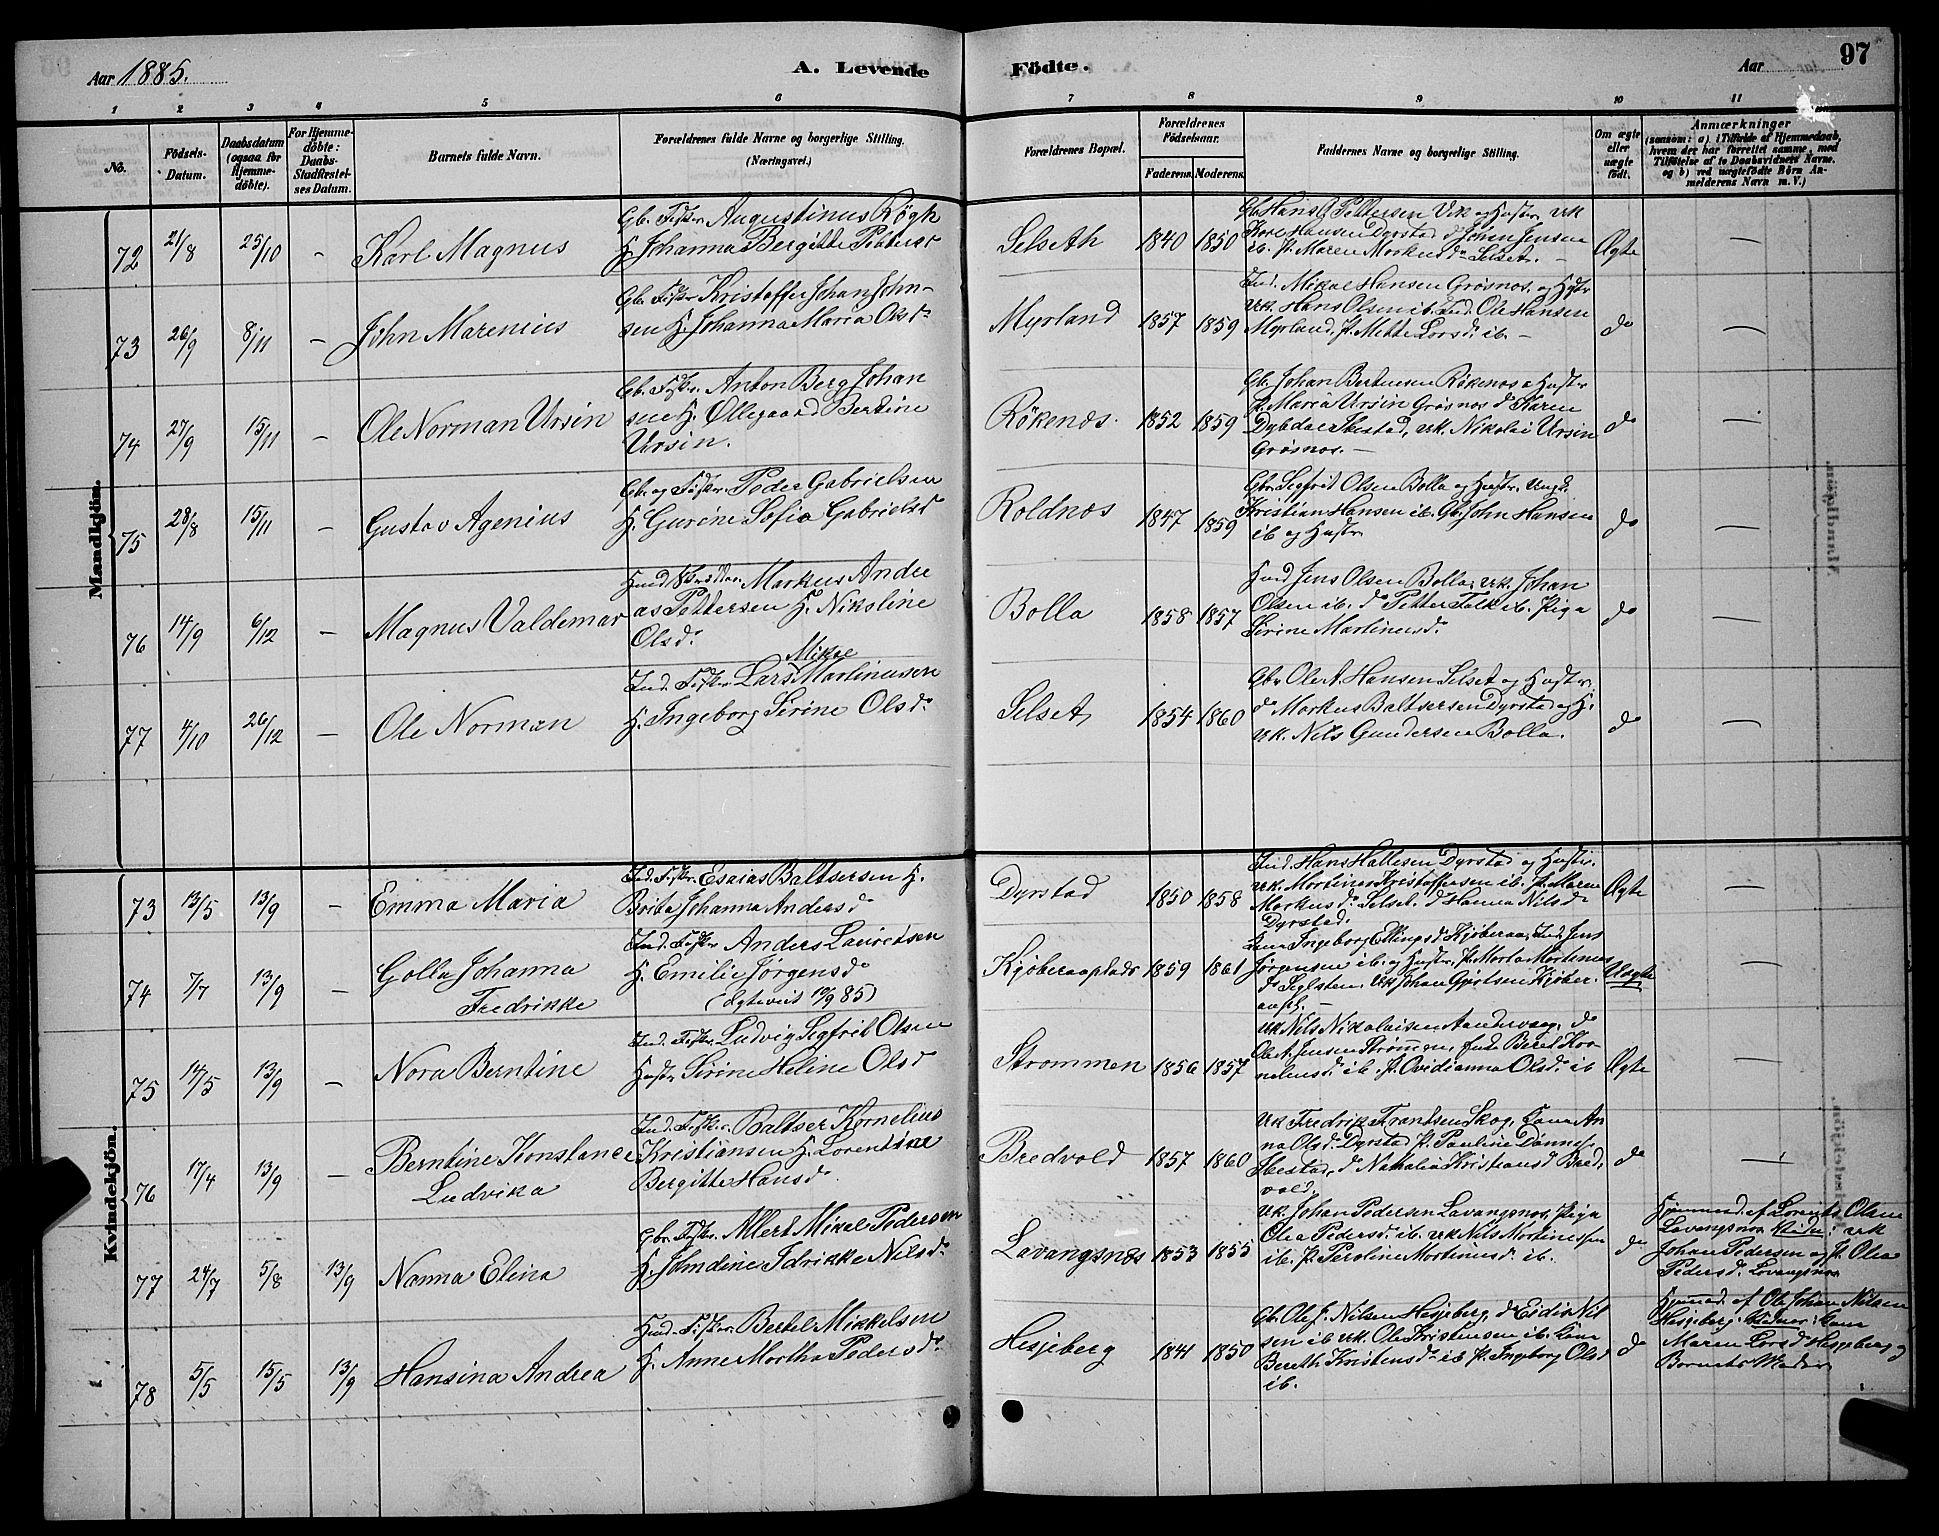 Aar 1885.
A. Levende
Födte.
Aar
97
1 2 3 4 5 6 7 8 9 10 11
No.
Födsels-Datum.
Daabsdatum (ogsaa for Hjemme-döbte).
For Hjemme-döbte: Daabs-Stadfæstel-ses Datum.
Barnets fulde Navn.
Forældrenes fulde Navne og borgerlige Stilling. (Næringsvei.)
Forældrenes Bopæl.
Forældrenes Födselsaar.
Faderens. Moderens.
Faddernes Navne og borgerlige Stilling.
Om ægte eller uægte födt.
Anmærkninger
(saasom: a) i Tilfælde af Hjemmedaab, hvem der har forrettet samme, med Tilföielse af to Daabsvidners Navne, og b) ved uægtefödte Börn An-melderens Navn m. V.)
Mandkjön.
72 21/8 25/10 - Karl Magnus
Gb. Fisker Augustinus Røgh
H. Johanna Bergitte Petters
Selseth 1840 1850
Gb Hans P. Pettersen Vik og Hustr. Urk
Kore Hansen Dyrstad do John Jensen
ib. P. Maren Markusdr Selset. -
Ægte -
73 26/9 8/11 - John Marenius
Gb. Fisker Kristoffer Johan John-
sen H. Johanna Maria Olsdr
Myrland 1857 1859
Ind. Mikal Hansen Grøsnæs og Hustr
Urk. Hans Olsen ib. Ind. Ole Hansen
Myrland, P. Mette Larsd. ib. -
do -
74 27/9 15/11 - Ole Norman Ursin
Gb. Fisker. Anton Berg Johan
sen H. Ollegaard Berntine
Ursin.
Rökenæs. 1852 1859
Gb. Johan Berntsen Rökenæs o Hustr
P. Maria Ursin Grøsnæs do Karen
Dybdal Ibestad, Urk. Nikolai Ursin
Grøsnæs. -
do -
75 28/8 15/11 - Gustav Agenius
Gb. og Fisker. Peder Gabrielsen
H. Gurine Sofia Gabrielsd
Roldnæs 1847 1859
Gbr Segfrid Olsen Bolla og Hustr. Ungk.
Kristian Hansen ib. Gb. John Hansen
ib og Hustr
do -
76 14/9 6/12 - Magnus Valdemar
Markus Andre
as Pettersen H. Nikoline
Olsdr
Bolla 1858 1857
Hmd Jens Olsen Bolla, Urk. Johan
Olsen ib. do Petter Falk ib. Piga
Sirine Martinusd.
do -
77 4/10 26/12 - Ole Norman
Mikal
Ind. Fisker Lars Martinussen
H. Ingeborg Sirine Olsdr
Selset 1854 1860
Gbr Ole A. Hansen Selset og Hustr.
do Markus Baltsersen Dyrstad og H.
Urk. Nils Gundersen Bolla.
do -
Kvindekjön.
73 13/5 13/9 - Emma Maria
Ind. Fisker. Esaias Baltsersen H.
Brita Johanna Andersdr
Dyrstad 1850 1858
Ind. Hans Hallesen Dyrstad og Hustr.
Urk. Martinus Kristoffersen ib. P. Maren
Markusdr Selset. do Hanna Nilsdr
Dyrstad.
Ægte -
74 7/7 13/9 - Golla Johanna
Fredrikke
Ind. Fisker Anders Lauritsen
H. Emilie Jørgensdr
(Egteviet 13/9 85)
Kjøberaaplads 1859 1861
Kone Ingeborg Ellingsd Kjøberaa, Ind. Jens
Jørgensen ib. og Hustr, P. Marta Martines
dr Seglsten, Urk Johan Gjertsen Kjøber
aapl. -
Uægte -
75 14/5 13/9 - Nora Berntine
Ind. Fisker Ludvig Segfrid Olsen
Hustr Sirine Heline Olsd
Strommen 1856 1857
Urk Nils Nikolaisen Aandervaag, do
Ole A. Jensen Strømmen, Enke Beret Kor
neliusd. ib. P. Ovidianna Olsd. ib
Ægte -
76 17/4 13/9 - Berntine Konstance
Ludvika
Ind. Fisker. Baltser Kornelius
Kristiansen H. Lorentine
Bergitte Hansd
Bredvold 1857 1860
Urk Fredrik Frantsen Skog, Kone An-
na Olsd. Dyrstad P. Pauline Dønnes
Ibestad, do Nathalia Kristiansd Bred-
vold.
do -
77 24/7 5/8 13/9 Nanna Elina
Gbr. Fisker. Allert Mikal Pedersen
H. Johndine Fdrikke Nilsdr
Lavangsnæs 1853 1855
Urk. Johan Pedersen Lavangsnæs, Piga
Olea Pedersd. ib. Urk Nils Martinussen
ib. P. Peroline Martinusd. ib.
do
Hjemmed. af Lorents Olsen
Lavangsnæs Vidner: Urk
Johan Pedersen og P. Olea
Pedersd. Lavangsnæs
78 5/5 15/5 13/9 Hansina Andrea
Hmd. Fisker. Bertel Mikkelsen
H. Anne Martha Pedersdr
Hesjeberg 1841 1850
Gb. Ole J. Nilsen Hesjeberg, do Eidis Nil
sen ib Urk. Ole Kristensen ib. Kone
Bereth Kristensd ib P. Ingeborg Olsd
ib.
do
Hjemmed. af Ole Johan Nilsen
Hesjeberg. Vidner: Kone
Maren Larsd Hesjeberg og
Barnets Moder